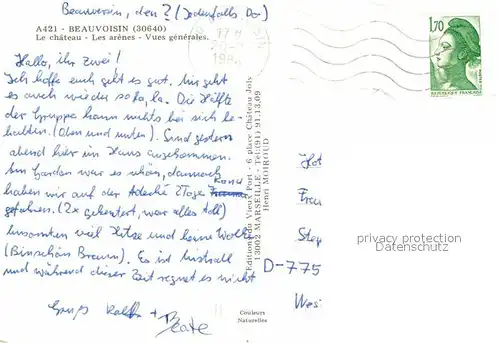 Beauvoisin, den ? (Jedenfalls Do)
A421 - BEAUVOISIN (30640)
Le château - Les arènes - Vues générales.
17 H
1,70
RÉPUBLIQUE FRANÇAISE
Hallo, ihr zwei!
Ich hoffe euch geht es gut. Mir geht
es auch wieder so la, la. Die Hälfte
der Gruppe kann nichts bei sich be-
halten. (Oben und unten). Sind gestern
abend hier im Haus angekommen.
Am Gardon war es schön, dannach
haben wir auf der Adeche 2 Tage Kanu
gefahren. (2x gekentert, war alles toll)
Ansonsten viel Hitze und keine Wolken
(Binschön Braun). Es ist Mistral
und während dieser Zeit regnet es nicht
Gruß Ralf + Beate
Editions du Vieux Port - 6 place Château Joly
13002 MARSEILLE - Tél: (91) 91.13.09
Henri MOIROUD
Couleurs
Naturelles
D-775
privacy protection
Datenschutz